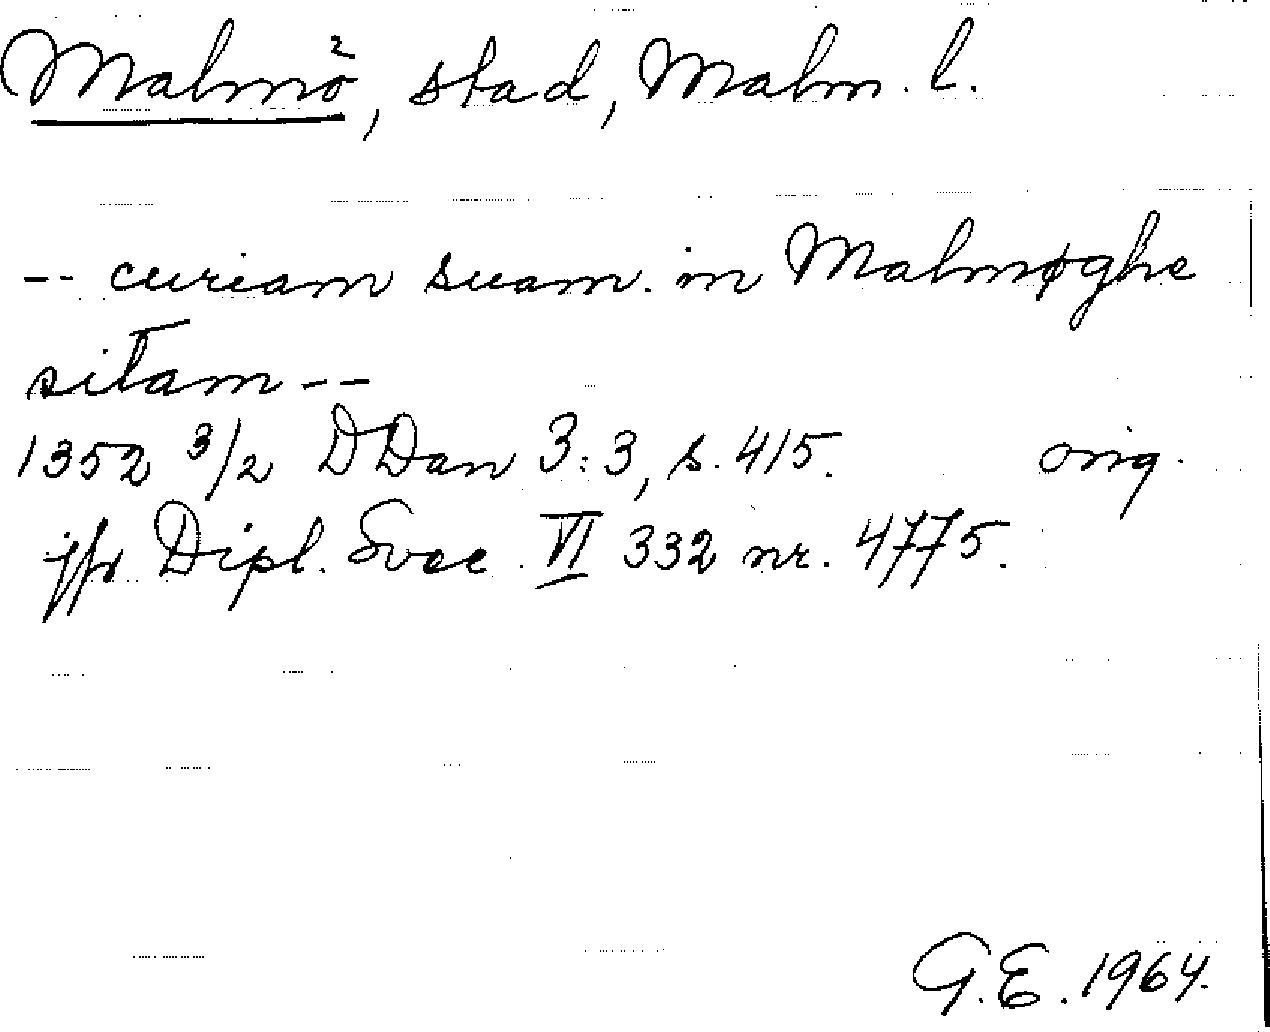 Malmö, stad, Malm. l.
-- curiam suam. in Malmøghe
sitam --
1352 3/2 DDan 3:3, s. 415. orig.
jfr Dipl. Svec. VI 332 nr. 4775.
G.E. 1964.